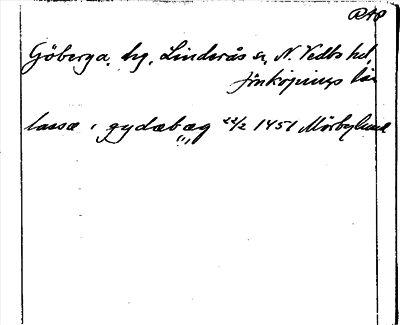 RAp
Göberga, by, Linderås sn, N. Vedbo hd,
Jönköpings län
lassæ i gydæbærg 22/2 1451 Mörbylund